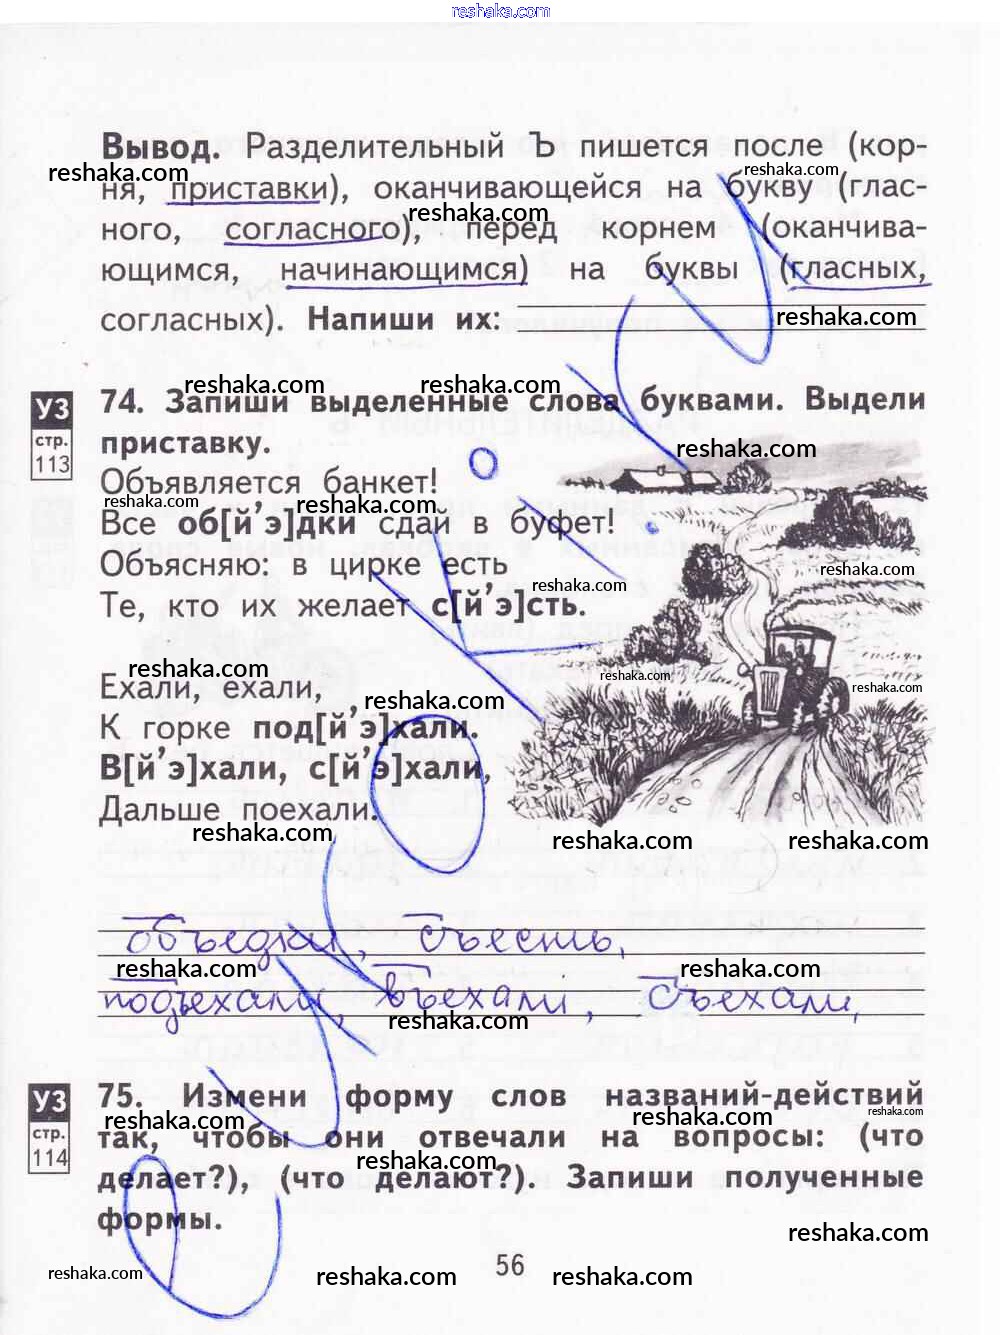 reshaka.com
Вывод. Разделительный Ъ пишется после (кор-
reshaka.com reshaka.com
ня, приставки), оканчивающейся на букву (глас-
reshaka.com
ного, согласного), перед корнем (оканчива-
ющимся, начинающимся) на буквы (гласных,
согласных). Напиши их:
reshaka.com
reshaka.com reshaka.com
УЗ
стр.
113
74. Запиши выделенные слова буквами. Выдели
приставку.
reshaka.com
Объявляется банкет!
reshaka.com reshaka.com
Все об[й’э]дки сдай в буфет!
Объясняю: в цирке есть
reshaka.com reshaka.com
Те, кто их желает с[й’э]сть.
reshaka.com reshaka.com
Ехали, ехали,
reshaka.com reshaka.com
К горке под[й’э]хали.
В[й’э]хали, с[й’э]хали,
Дальше поехали.
reshaka.com reshaka.com reshaka.com
объедки, съесть,
reshaka.com reshaka.com
подъехали, въехали, съехали,
reshaka.com
УЗ
стр.
114
75. Измени форму слов названий-действий
reshaka.com reshaka.com reshaka.com
так, чтобы они отвечали на вопросы: (что
reshaka.com
делает?), (что делают?). Запиши полученные
формы.
reshaka.com
56
reshaka.com reshaka.com reshaka.com